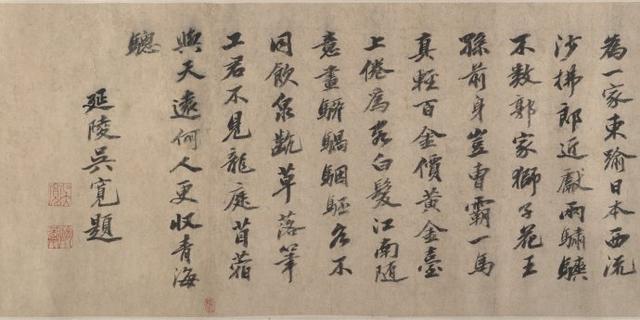 為一家東踰日本西流
沙拂郎近獻兩驌
不數郭家獅子花王
孫前身豈曹霸一馬
真輕百金價黃金臺
上倦為客白髮江南隨
意畫騂騧駰駓各不
同飲泉齕草落筆
工君不見龍庭苜蓿
與天遠何人更收青海
驄
延陵吳寬題